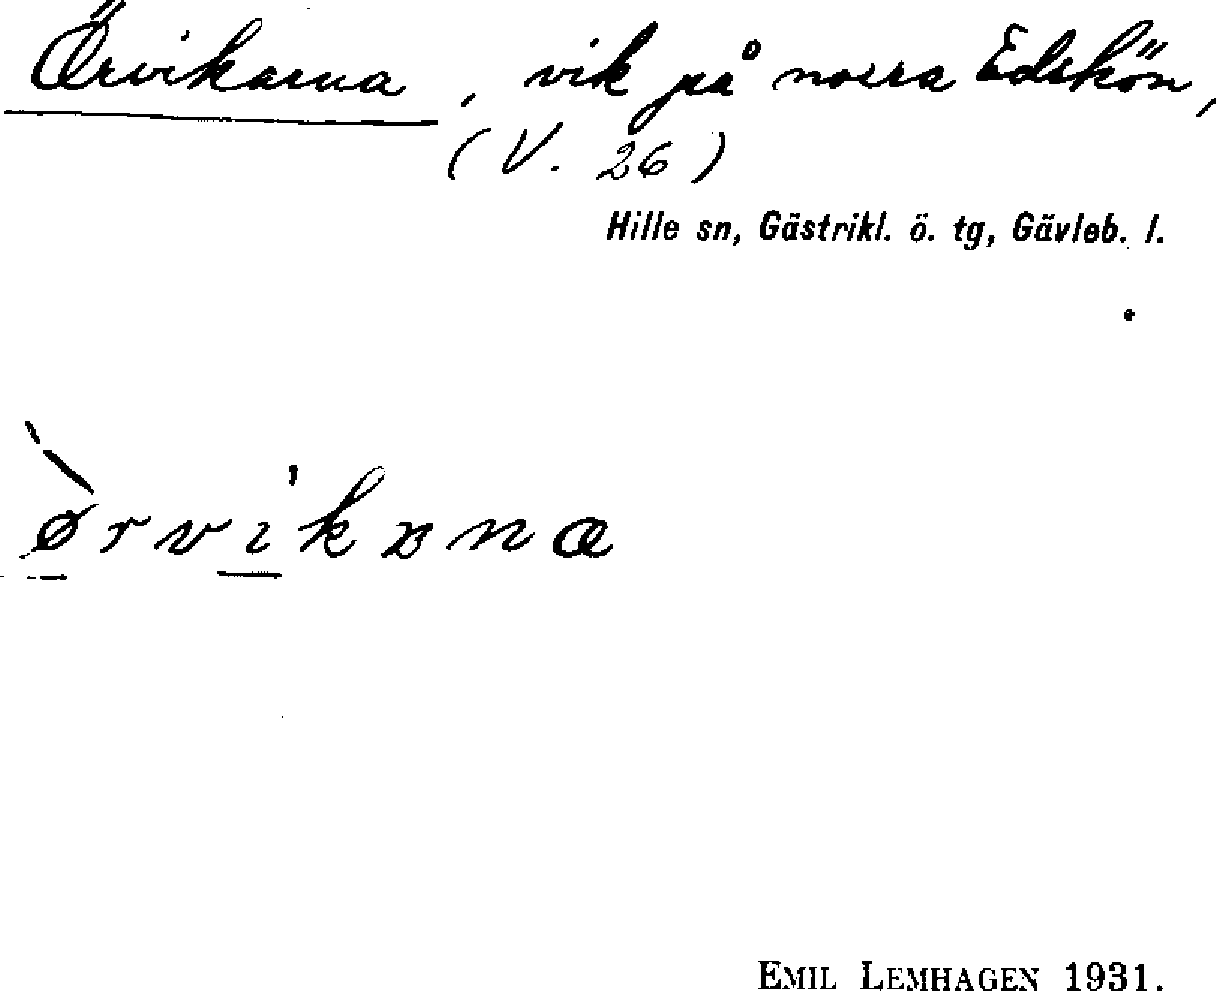 Örvikarna, vik på norra Edskön,
(V. 26)
Hille sn, Gästrikl. ö. tg, Gävleb. l.
EMIL LEMHAGEN 1931.